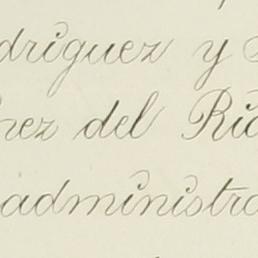 driguez y
nez del Rio
administra